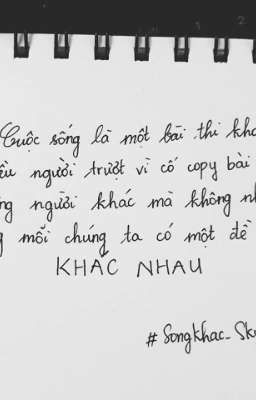 Cuộc sống là một bài thi khó
người trượt vì cố copy bài
người khác mà không
mỗi chúng ta có một đề
KHÁC NHAU
#Songkhac_